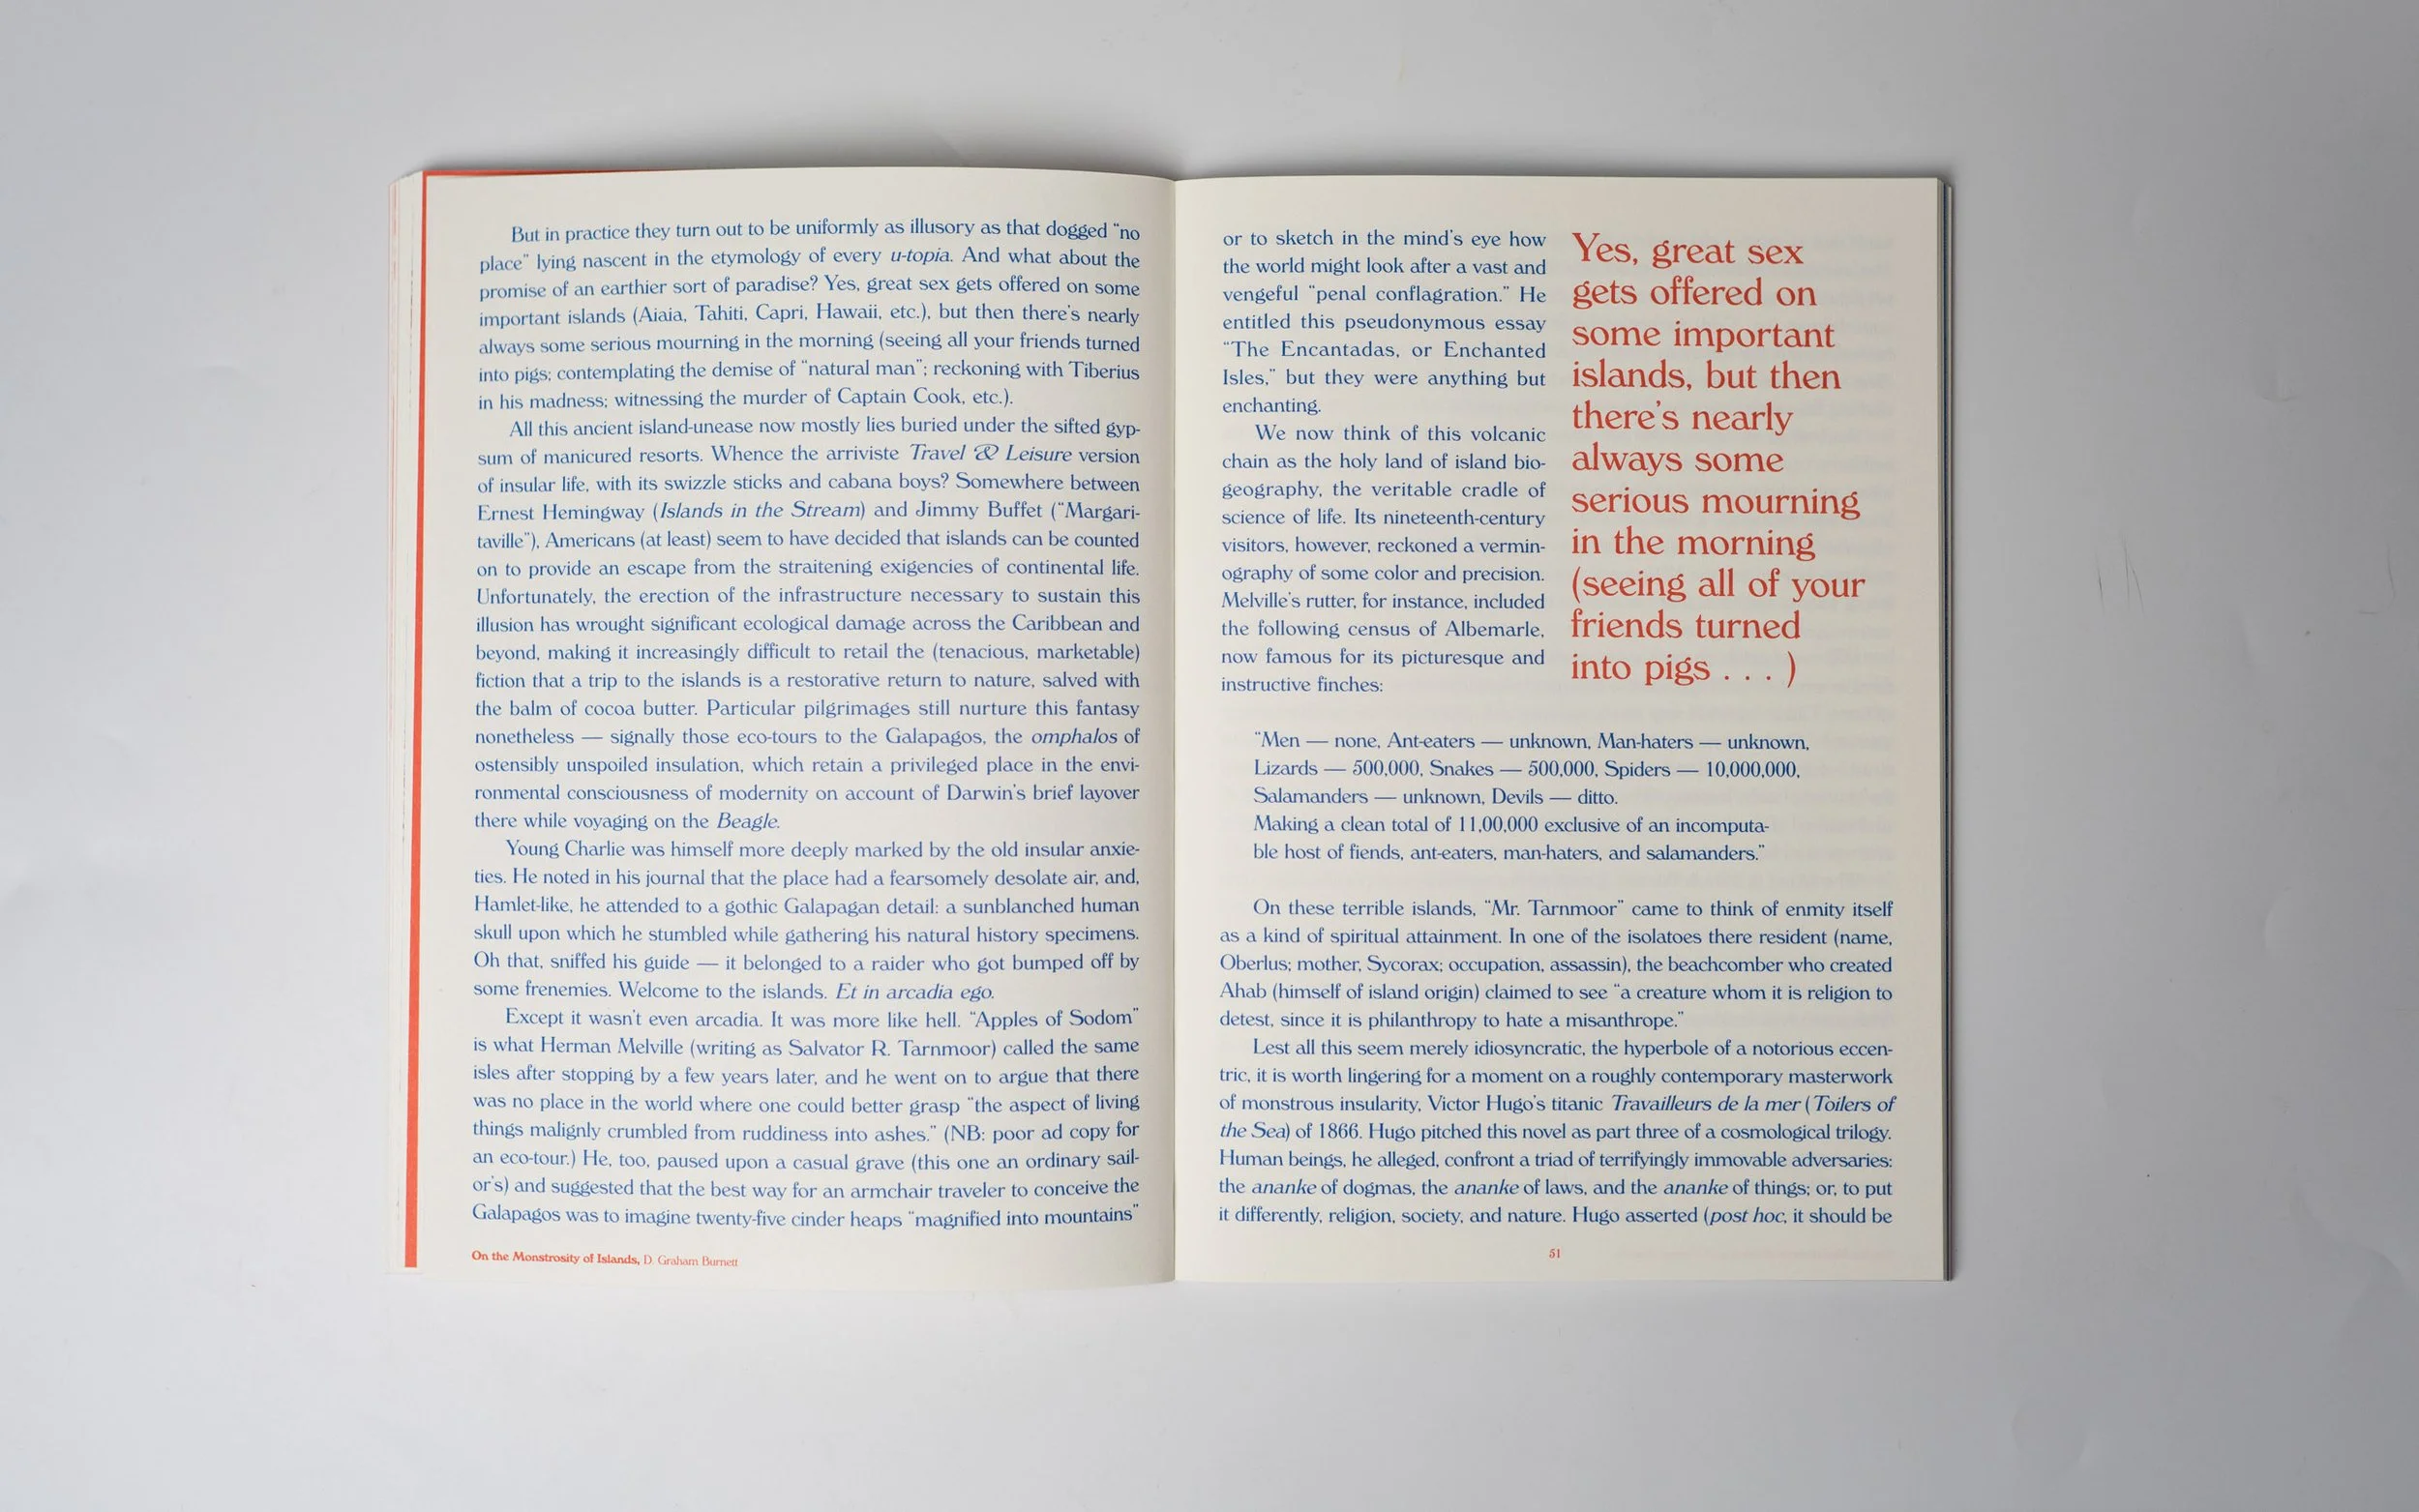 But in practice they turn out to be uniformly as illusory as that dogged “no
place” lying nascent in the etymology of every u-topia. And what about the
promise of an earthier sort of paradise? Yes, great sex gets offered on some
important islands (Aiaia, Tahiti, Capri, Hawaii, etc.), but then there’s nearly
always some serious mourning in the morning (seeing all your friends turned
into pigs; contemplating the demise of “natural man”; reckoning with Tiberius
in his madness; witnessing the murder of Captain Cook, etc.).
All this ancient island-unease now mostly lies buried under the sifted gyp-
sum of manicured resorts. Whence the arriviste Travel & Leisure version
of insular life, with its swizzle sticks and cabana boys? Somewhere between
Ernest Hemingway (Islands in the Stream) and Jimmy Buffet (“Margari-
taville”), Americans (at least) seem to have decided that islands can be counted
on to provide an escape from the straitening exigencies of continental life.
Unfortunately, the erection of the infrastructure necessary to sustain this
illusion has wrought significant ecological damage across the Caribbean and
beyond, making it increasingly difficult to retail the (tenacious, marketable)
fiction that a trip to the islands is a restorative return to nature, salved with
the balm of cocoa butter. Particular pilgrimages still nurture this fantasy
nonetheless — signally those eco-tours to the Galapagos, the omphalos of
ostensibly unspoiled insulation, which retain a privileged place in the envi-
ronmental consciousness of modernity on account of Darwin’s brief layover
there while voyaging on the Beagle.
Young Charlie was himself more deeply marked by the old insular anxie-
ties. He noted in his journal that the place had a fearsomely desolate air, and,
Hamlet-like, he attended to a gothic Galapagan detail: a sunblanched human
skull upon which he stumbled while gathering his natural history specimens.
Oh that, sniffed his guide — it belonged to a raider who got bumped off by
some frenemies. Welcome to the islands. Et in arcadia ego.
Except it wasn’t even arcadia. It was more like hell. “Apples of Sodom”
is what Herman Melville (writing as Salvator R. Tarnmoor) called the same
isles after stopping by a few years later, and he went on to argue that there
was no place in the world where one could better grasp “the aspect of living
things malignly crumbled from ruddiness into ashes.” (NB: poor ad copy for
an eco-tour.) He, too, paused upon a casual grave (this one an ordinary sail-
or’s) and suggested that the best way for an armchair traveler to conceive the
Galapagos was to imagine twenty-five cinder heaps “magnified into mountains”
On the Monstrosity of Islands, D. Graham Burnett
or to sketch in the mind’s eye how
the world might look after a vast and
vengeful “penal conflagration.” He
entitled this pseudonymous essay
“The Encantadas, or Enchanted
Isles,” but they were anything but
enchanting.
We now think of this volcanic
chain as the holy land of island bio-
geography, the veritable cradle of
science of life. Its nineteenth-century
visitors, however, reckoned a vermin-
ography of some color and precision.
Melville’s rutter, for instance, included
the following census of Albemarle,
now famous for its picturesque and
instructive finches:
Yes, great sex
gets offered on
some important
islands, but then
there’s nearly
always some
serious mourning
in the morning
(seeing all of your
friends turned
into pigs . . . )
“Men — none, Ant-eaters — unknown, Man-haters — unknown,
Lizards — 500,000, Snakes — 500,000, Spiders — 10,000,000,
Salamanders — unknown, Devils — ditto.
Making a clean total of 11,00,000 exclusive of an incomputa-
ble host of fiends, ant-eaters, man-haters, and salamanders.”
On these terrible islands, “Mr. Tarnmoor” came to think of enmity itself
as a kind of spiritual attainment. In one of the isolatoes there resident (name,
Oberlus; mother, Sycorax; occupation, assassin), the beachcomber who created
Ahab (himself of island origin) claimed to see “a creature whom it is religion to
detest, since it is philanthropy to hate a misanthrope.”
Lest all this seem merely idiosyncratic, the hyperbole of a notorious eccen-
tric, it is worth lingering for a moment on a roughly contemporary masterwork
of monstrous insularity, Victor Hugo’s titanic Travailleurs de la mer (Toilers of
the Sea) of 1866. Hugo pitched this novel as part three of a cosmological trilogy.
Human beings, he alleged, confront a triad of terrifyingly immovable adversaries:
the ananke of dogmas, the ananke of laws, and the ananke of things; or, to put
it differently, religion, society, and nature. Hugo asserted (post hoc, it should be
51